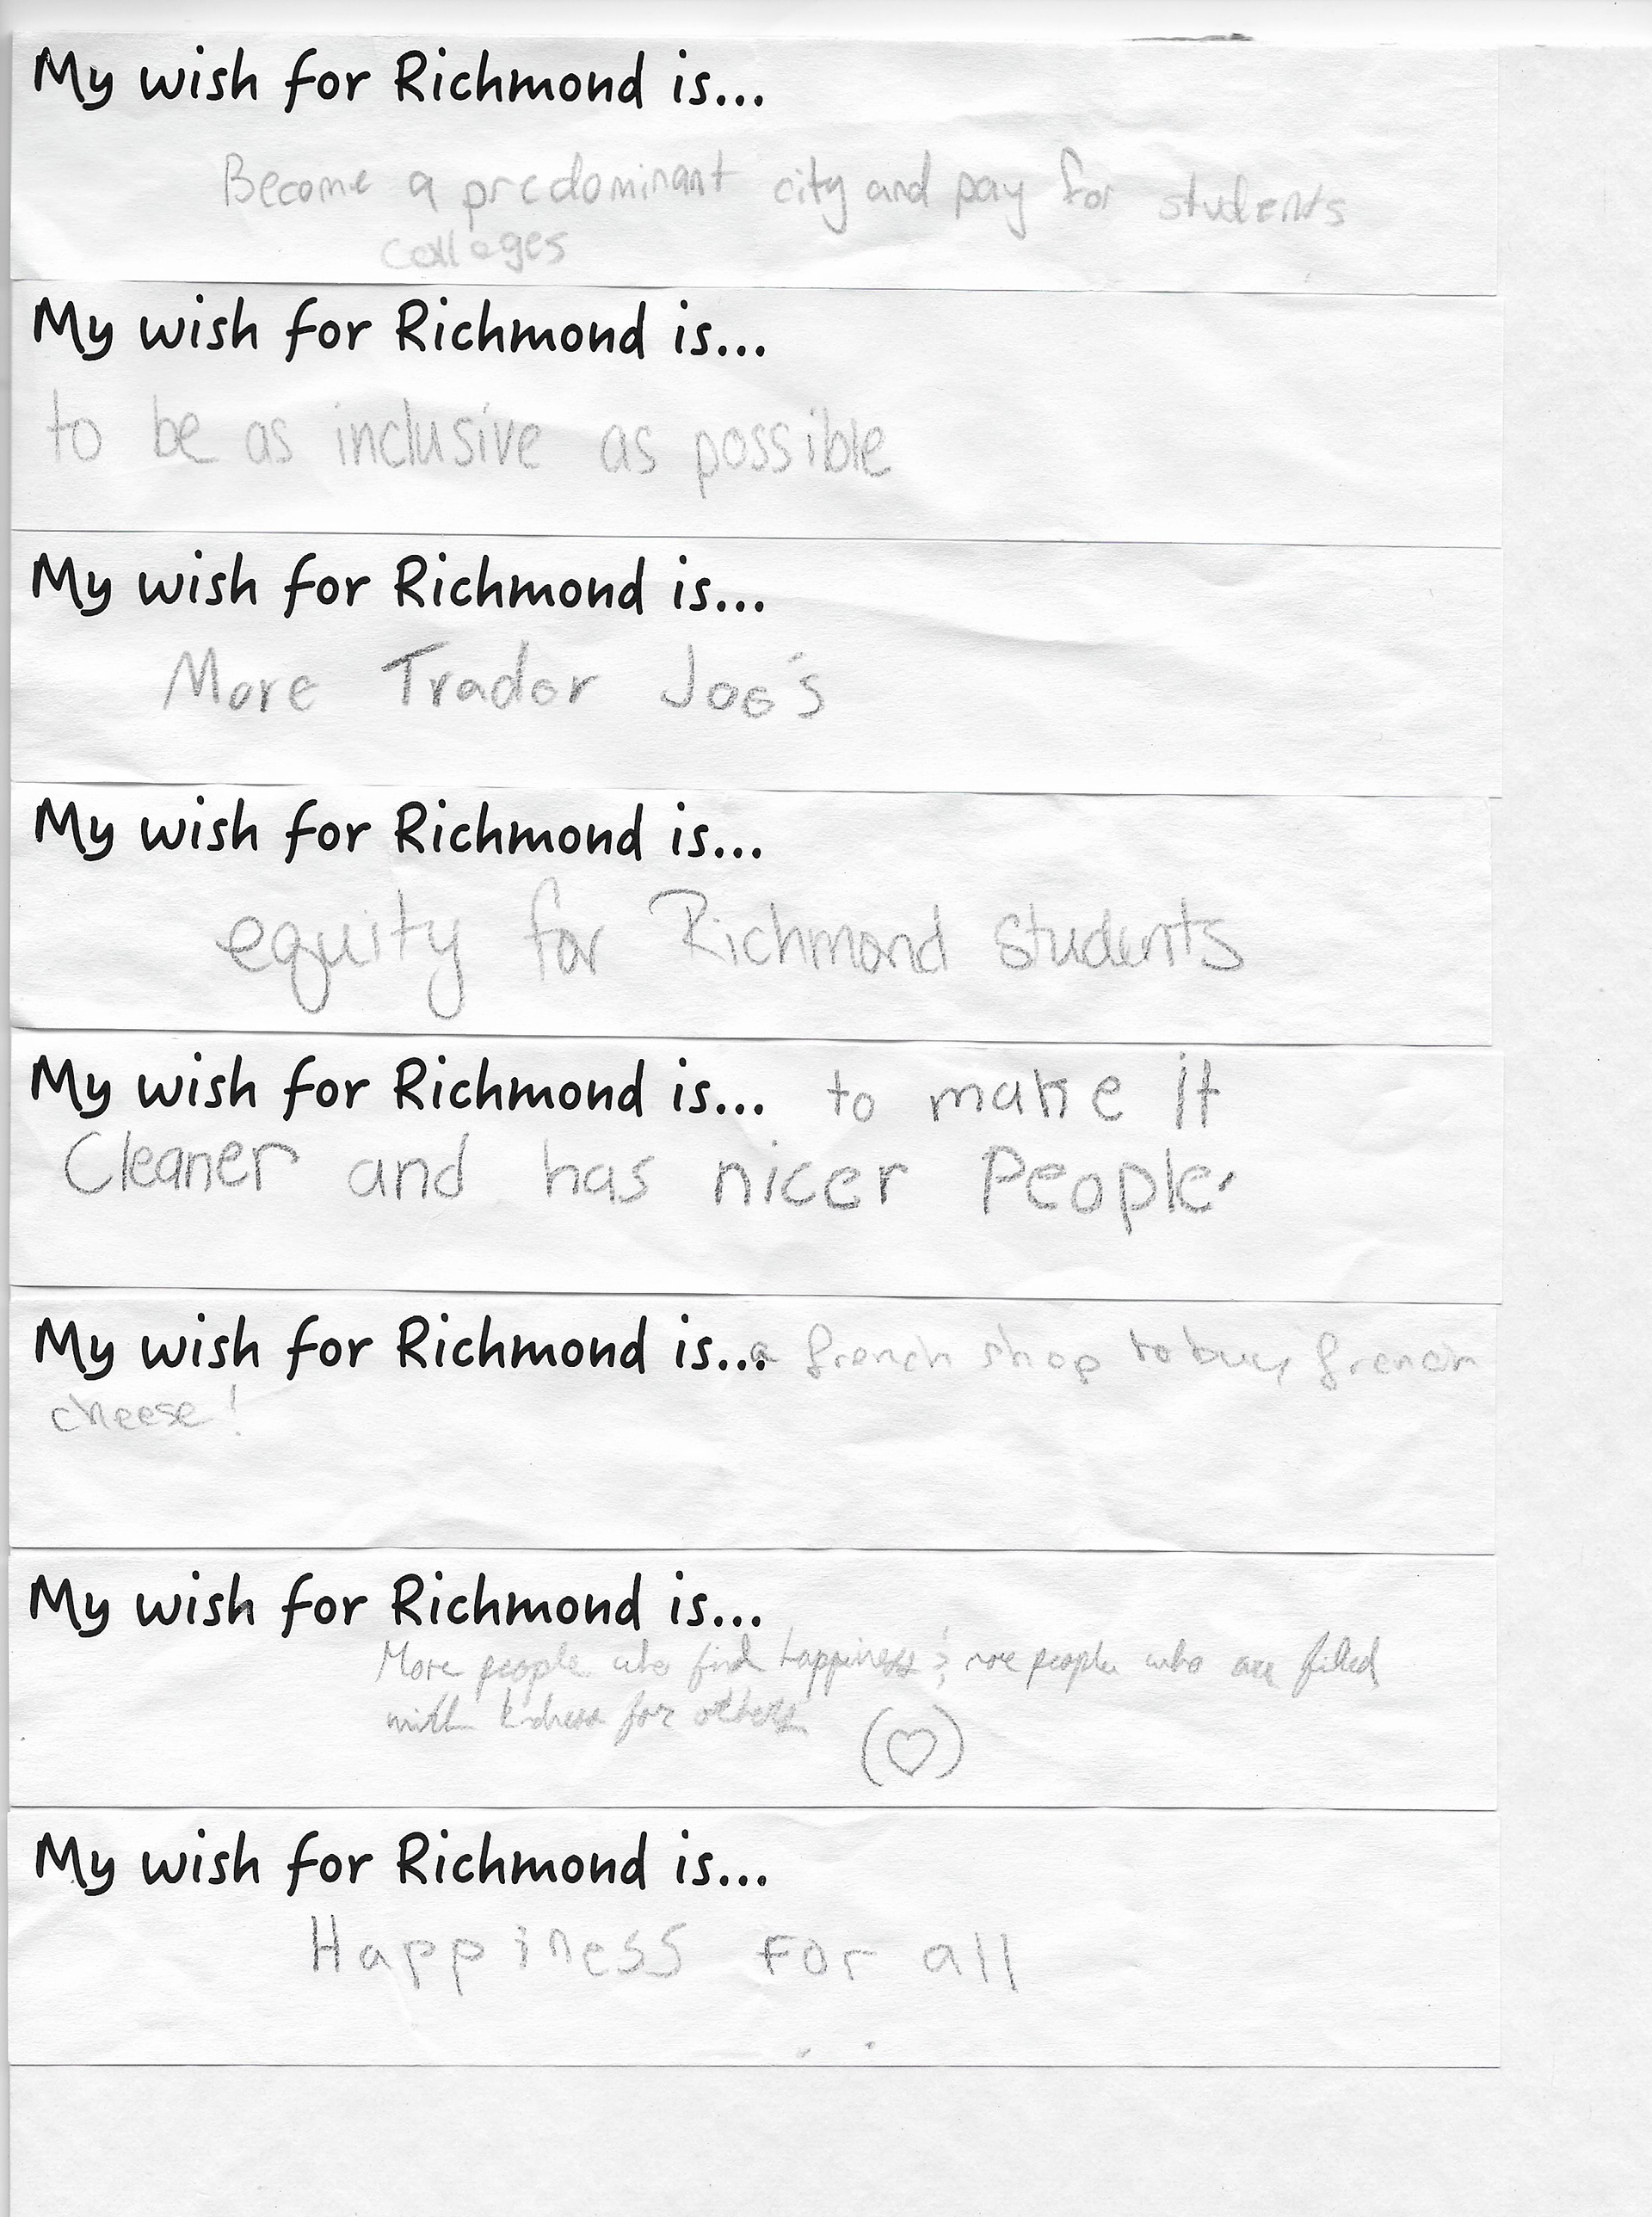 My wish for Richmond is...
Become a predominant city and pay for students
colleges
My wish for Richmond is...
to be as inclusive as possible
My wish for Richmond is...
More Trador Joe's
My wish for Richmond is...
equity for Richmond students
My wish for Richmond is... to make it
Cleaner and has nicer People.
My wish for Richmond is... a french shop to buy french
cheese!
My wish for Richmond is...
More people who find happiness & more people who are filled
with kindness for others
My wish for Richmond is...
Happiness For all